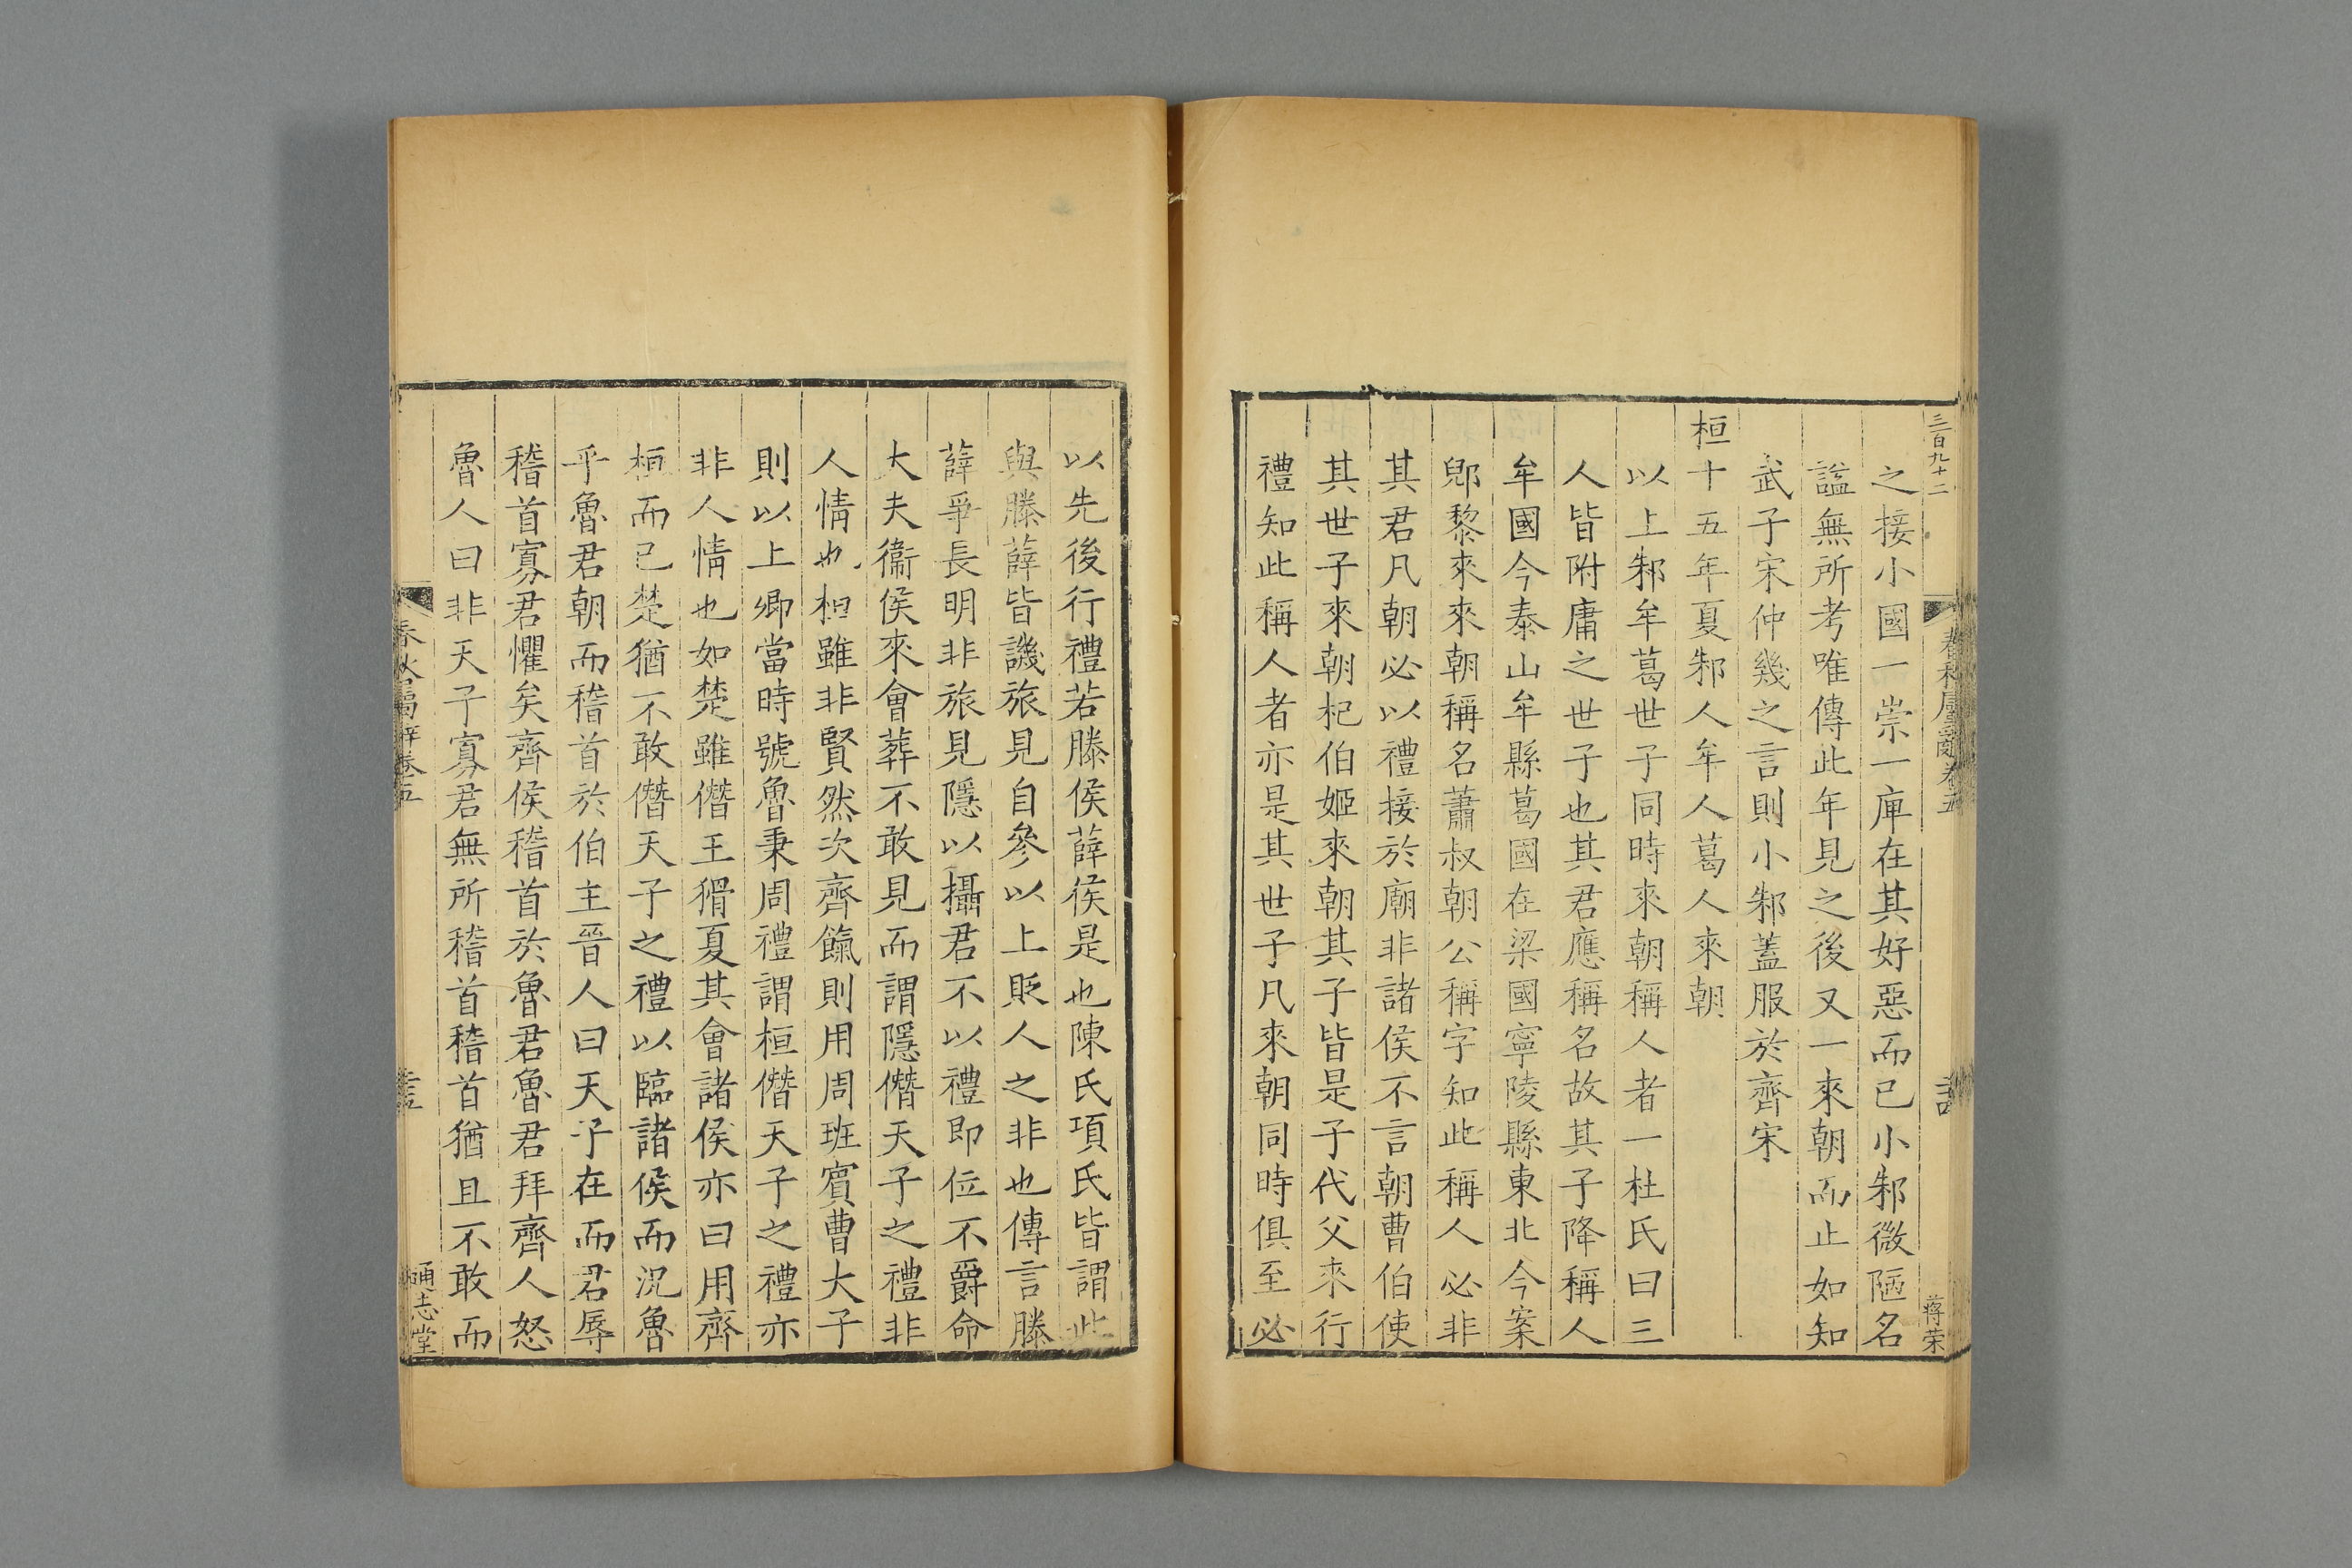 三百九十二
之接小國一崇一庳在其好惡而已小邾微陋名
諡無所考唯傳此年見之後又一來朝而止如知
武子宋仲幾之言則小邾蓋服於齊宋
桓十五年夏邾人牟人葛人來朝
以上邾牟葛世子同時來朝稱人者一杜氏曰三
人皆附庸之世子也其君應稱名故其子降稱人
牟國今泰山牟縣葛國在梁國寧陵縣東北今案
郳黎來來朝稱名蕭叔朝公稱字知此稱人必非
其君凡朝必以禮接於廟非諸侯不言朝曹伯使
其世子來朝杞伯姬來朝其子皆是子代父來行
禮知此稱人者亦是其世子凡來朝同時俱至必
蔣荣
以先後行禮若滕侯薛侯是也陳氏項氏皆謂此
與滕薛皆譏旅見自參以上貶人之非也傳言滕
薛爭長明非旅見隱以攝君不以禮即位不爵命
大夫衞侯來會葬不敢見而謂隱僭天子之禮非
人情也桓雖非賢然次齊餼則用周班賓曹大子
則以上卿當時號魯秉周禮謂桓僭天子之禮亦
非人情也如楚雖僭王猾夏其會諸侯亦曰用齊
桓而已楚猶不敢僭天子之禮以臨諸侯而況魯
乎魯君朝而稽首於伯主晉人曰天子在而君辱
稽首寡君懼矣齊侯稽首於魯君魯君拜齊人怒
魯人曰非天子寡君無所稽首稽首猶且不敢而
春秋屬辭卷五
通志堂